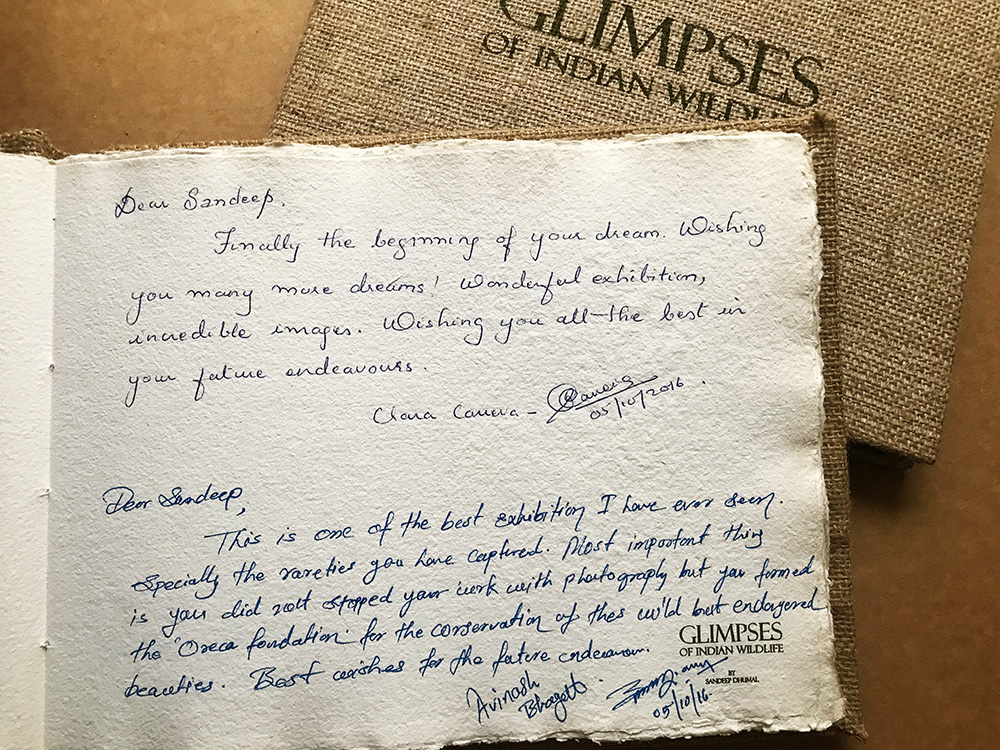 GLIMPSES
OF INDIAN WILDLIFE
Dear Sandeep,
Finally the beginning of your dream. Wishing
you many more dreams! Wonderful exhibition,
incredible images. Wishing you all the best in
your future endeavours.
Clara Canova -
05/10/2016.
Dear Sandeep,
This is one of the best exhibition I have ever seen.
especially the rareties you have captured. Most important thing
is you did not stopped your work with photography but you formed
the "Oreca foundation" for the conservation of thes wild but endagered
beauties. Best wishes for the future endeavour.
Avinash
Bhagat
05/10/16.
GLIMPSES
OF INDIAN WILDLIFE
BY
SANDEEP DHUMAL